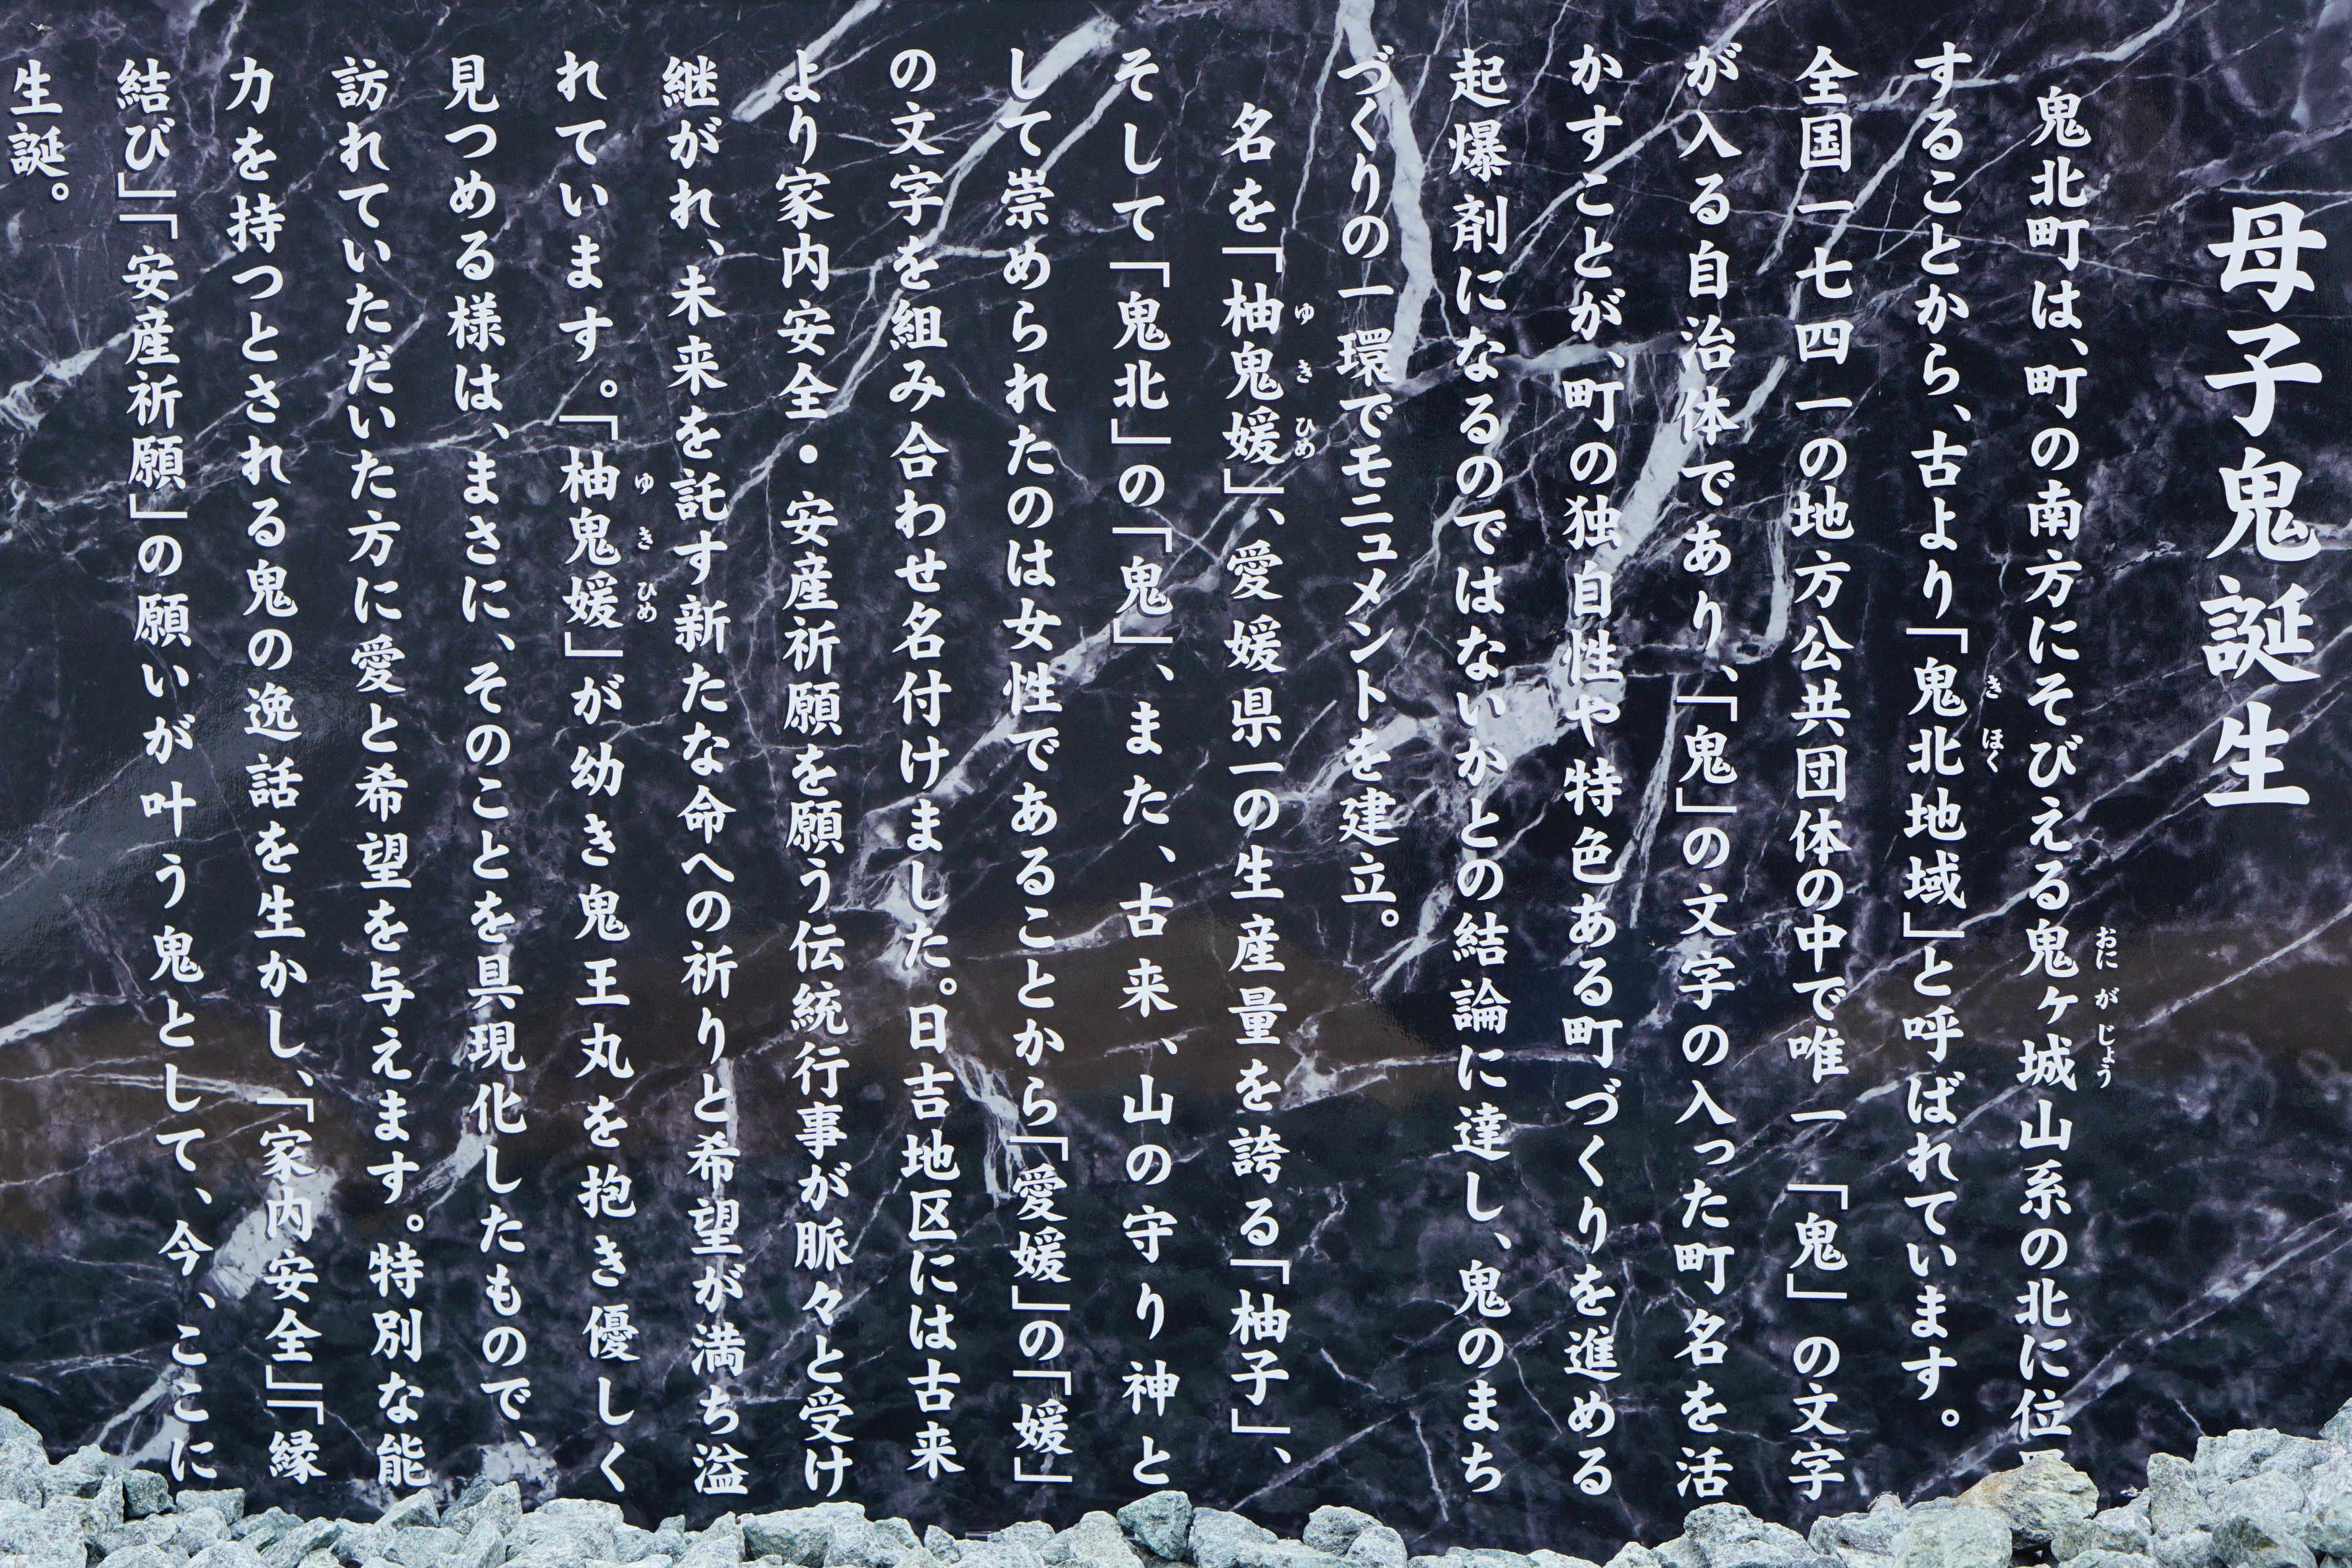 母子鬼誕生
鬼北町は、町の南方にそびえる鬼ヶ城山系の北に位
おにがじょう
することから、古より「鬼北地域」と呼ばれています。
きほく
全国一七四一の地方公共団体の中で唯一「鬼」の文字
が入る自治体であり、「鬼」の文字の入った町名を活
かすことが、町の独自性や特色ある町づくりを進める
起爆剤になるのではないかとの結論に達し、鬼のまち
づくりの一環でモニュメントを建立。
名を「柚鬼媛」、愛媛県一の生産量を誇る「柚子」、
ゆきひめ
そして「鬼北」の「鬼」、また、古来、山の守り神と
して崇められたのは女性であることから「愛媛」の「媛」
の文字を組み合わせ名付けました。日吉地区には古来
より家内安全・安産祈願を願う伝統行事が脈々と受け
継がれ、未来を託す新たな命への祈りと希望が満ち溢
れています。「柚鬼媛」が幼き鬼王丸を抱き優しく
ゆきひめ
見つめる様は、まさに、そのことを具現化したもので、
訪れていただいた方に愛と希望を与えます。特別な能
力を持つとされる鬼の逸話を生かし、「家内安全」「縁
結び」「安産祈願」の願いが叶う鬼として、今、ここに
生誕。